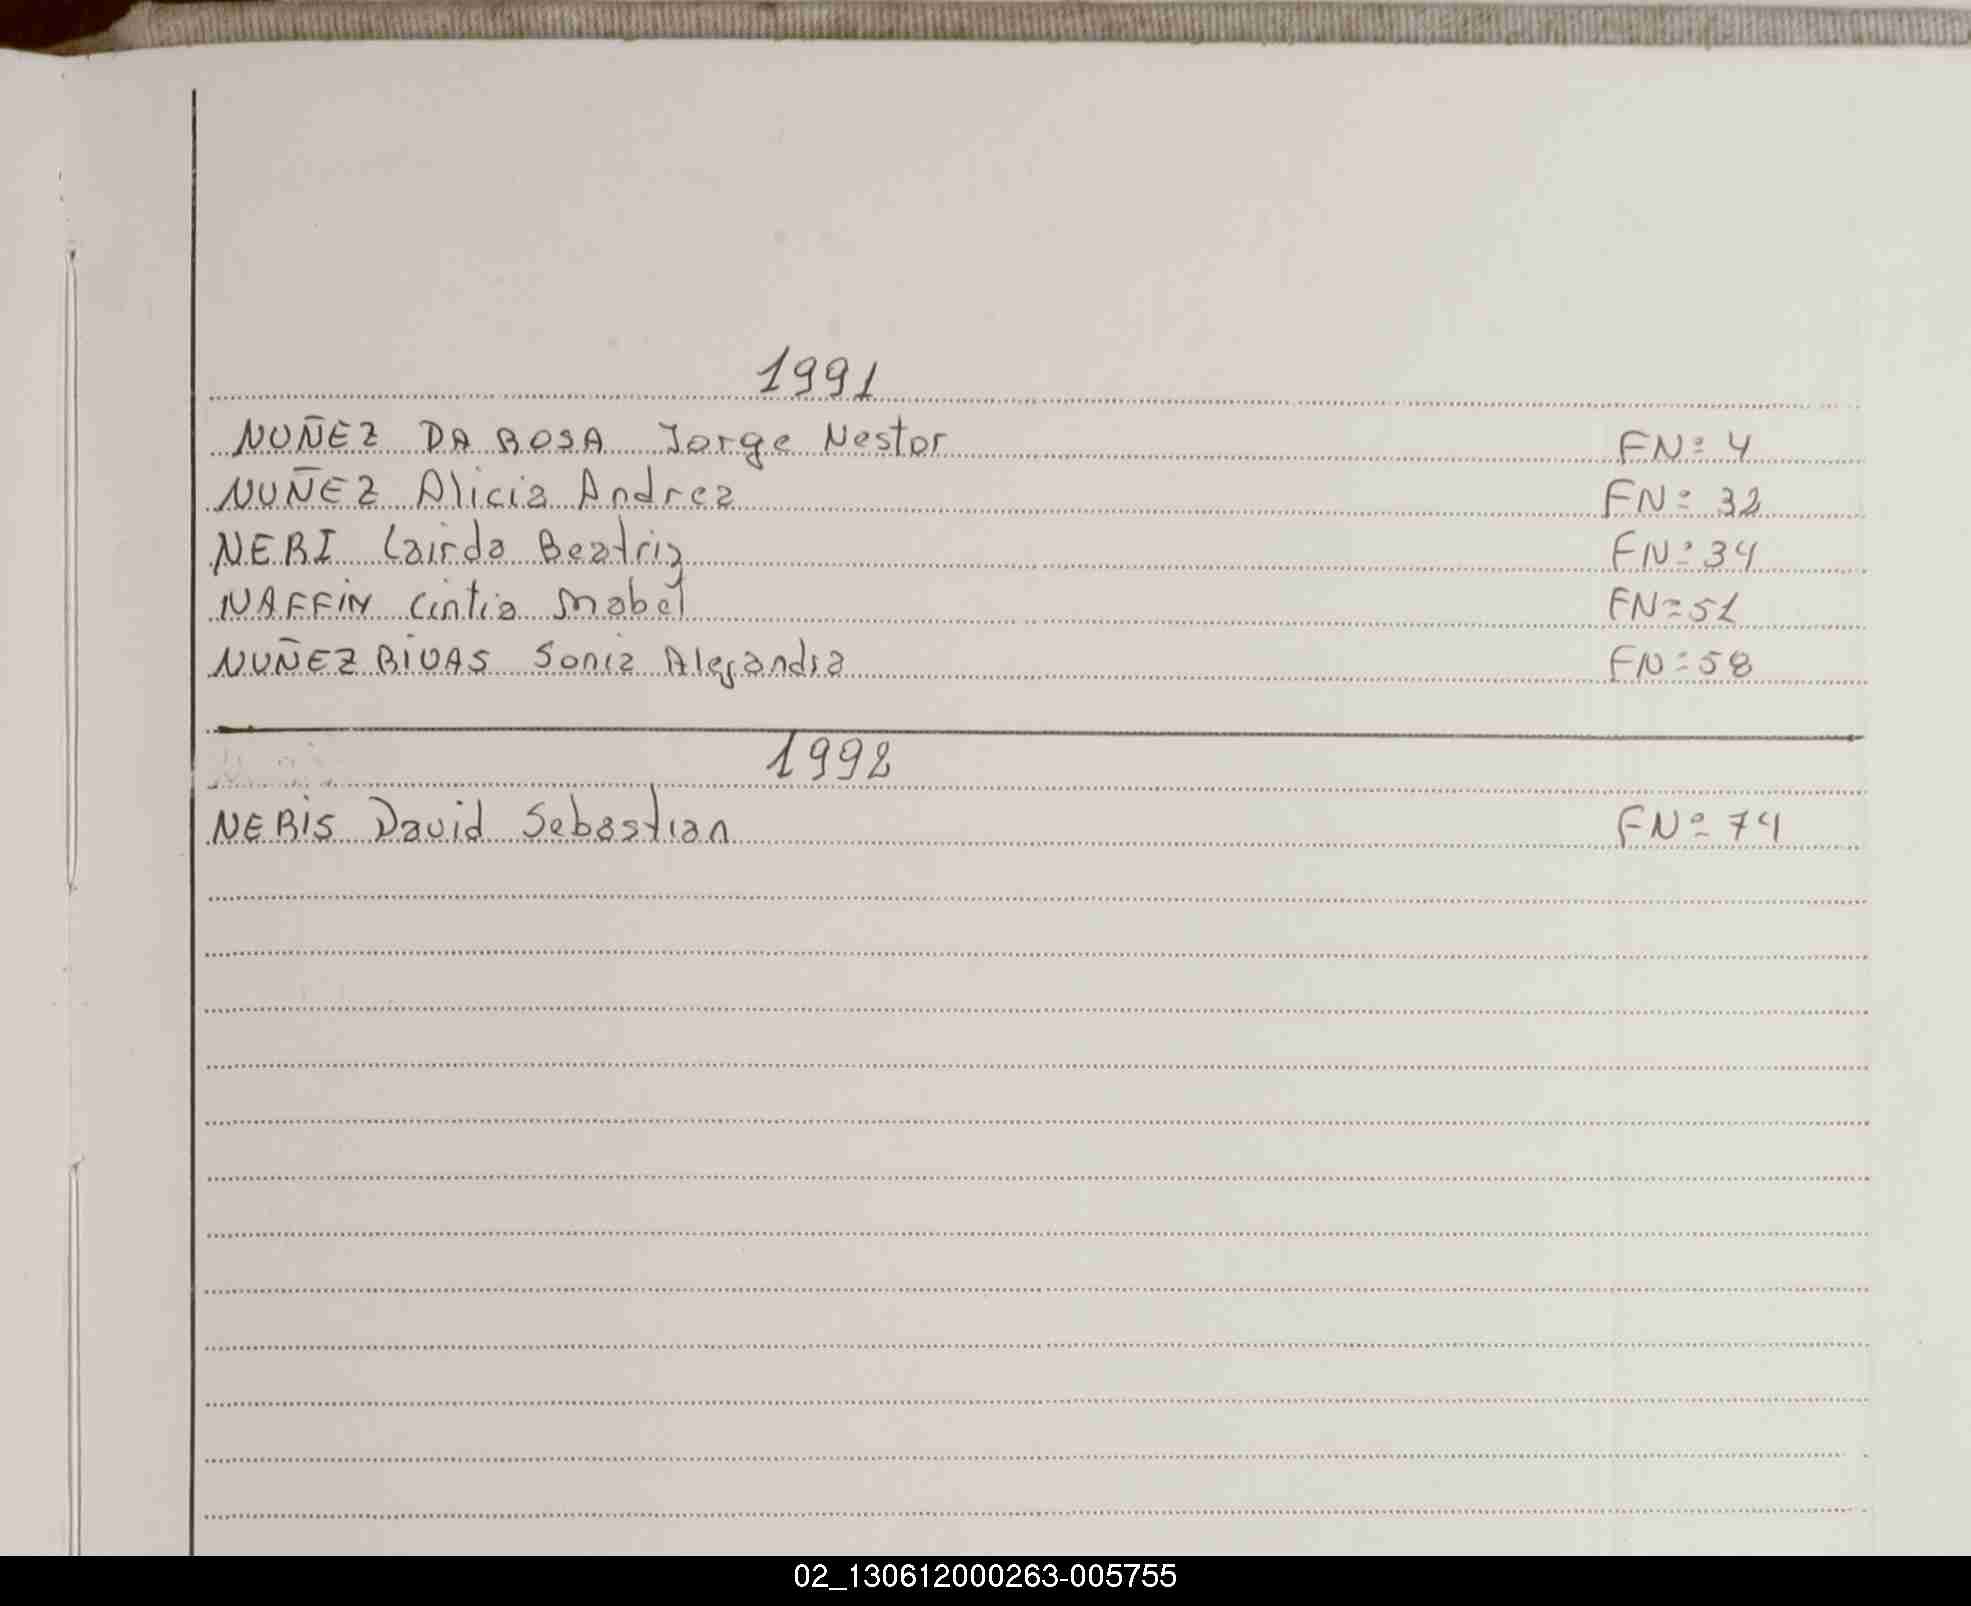 1991
NUÑEZ DA ROSA Jorge Nestor FNº 4
NUÑEZ Alicia Andrea FNº 32
NERI Lairda Beatriz FNº 34
NAFFIN Cintia Mabel FNº 51
NUÑEZ RIVAS Sonia Alejandra FNº 58
1992
NERIS David Sebastian FNº 74
02_130612000263-005755